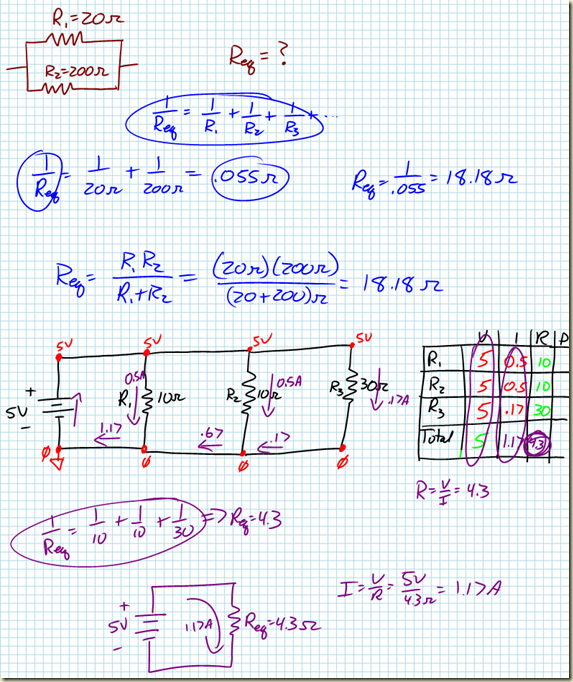 R₁=20Ω
R₂=200Ω
Req = ?
1/Req = 1/R₁ + 1/R₂ + 1/R₃ + ...
1/Req = 1/20Ω + 1/200Ω = .055Ω
Req = 1/.055 = 18.18Ω
Req = R₁R₂/R₁+R₂ = (20Ω)(200Ω)/(20+200)Ω = 18.18Ω
5V 5V 5V 5V
+ 5V −
0.5A R₁ 10Ω
R₂ 10Ω 0.5A
R₃ 30Ω .17A
1.17 .67 .17
Ø Ø Ø Ø
V I R P
R₁ 5 0.5 10
R₂ 5 0.5 10
R₃ 5 .17 30
Total 5 1.17 4.3
R = V/I = 4.3
1/Req = 1/10 + 1/10 + 1/30 => Req = 4.3
I = V/R = 5V/4.3Ω = 1.17A
+ 5V − 1.17A Req=4.3Ω